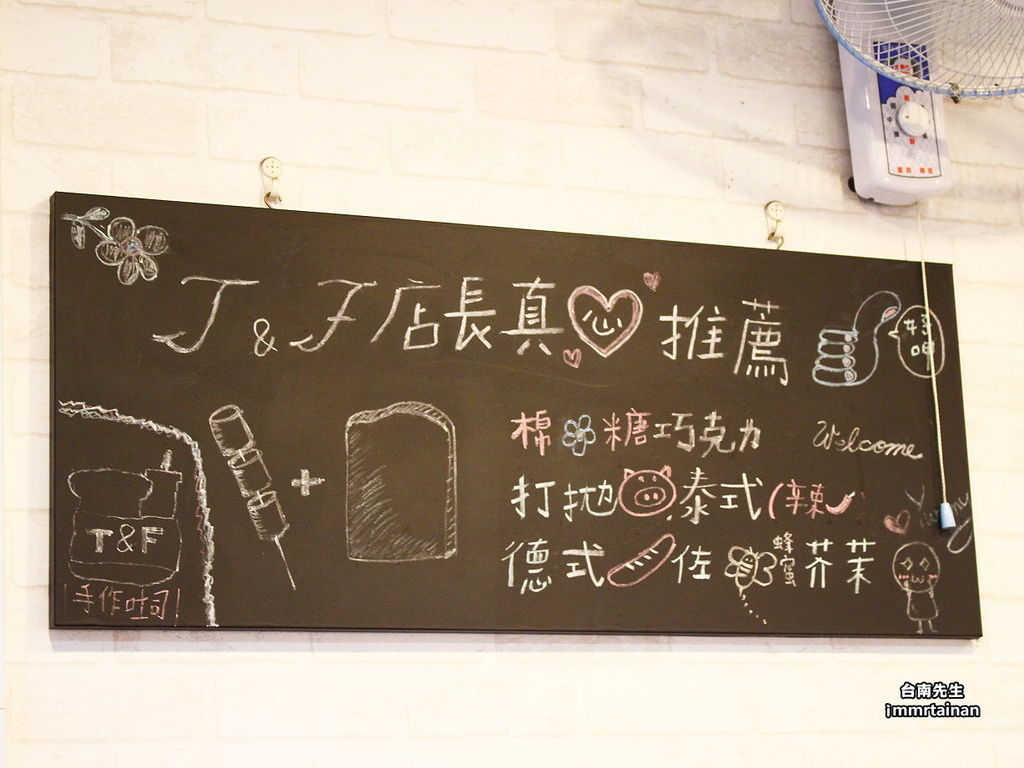 J & F 店長真心推薦
棉糖巧克力
Welcome
打拋泰式(辣
德式佐蜂蜜芥茉
T&F
手作吐司
台南先生
jmmrtainan